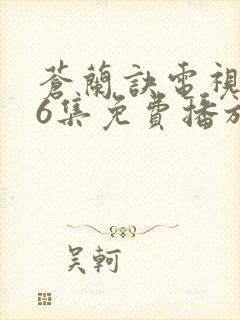 蒼蘭訣電視
6集免費播放
吴軻